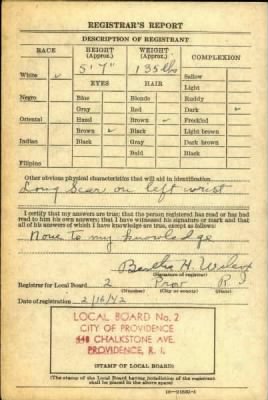 REGISTRAR'S REPORT
DESCRIPTION OF REGISTRANT
RACE HEIGHT (Approx.) WEIGHT (Approx.) COMPLEXION
5' 7" 135 lbs
White ✓ Sallow
EYES HAIR Light
Negro Blue Blonde Ruddy
Gray Red Dark ✓
Oriental Hazel Brown ✓ Freckled
Brown ✓ Black Light brown
Indian Black Gray Dark brown
Bald Black
Filipino
Other obvious physical characteristics that will aid in identification
Long Scar on left wrist
I certify that my answers are true; that the person registered has read or has had
read to him his own answers; that I have witnessed his signature or mark and that
all of his answers of which I have knowledge are true, except as follows:
None to my knowledge
Bertha H.
(Signature of registrar)
Registrar for Local Board 2 Prov R I
(Number) (City or county) (State)
Date of registration 2/16/42
LOCAL BOARD No. 2
CITY OF PROVIDENCE
CHALKSTONE AVE.
PROVIDENCE, R. I.
(STAMP OF LOCAL BOARD)
(The stamp of the Local Board having jurisdiction of the registrant
shall be placed in the above space)